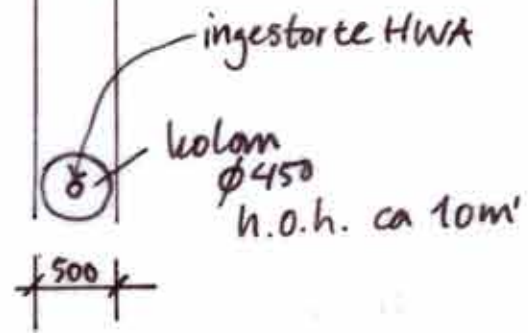 ingestorte HWA
kolom
φ450
h.o.h. ca 10m'
500